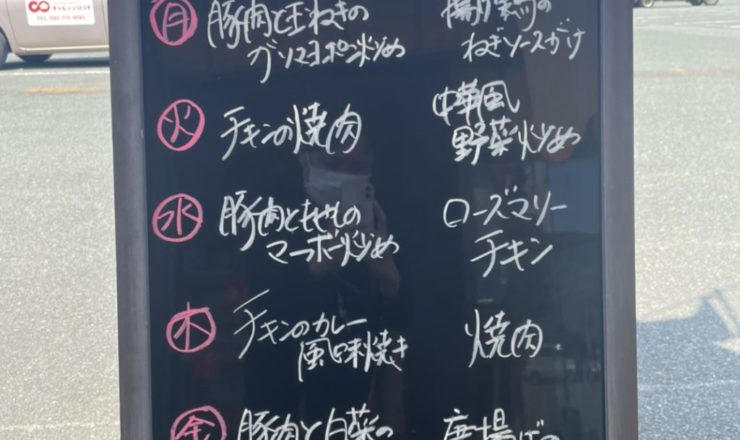 月 豚肉と玉ねぎの
ゴマヨポン炒め
ねぎソースがけ
火 チキンの焼肉
中華風
野菜炒め
水 豚肉ともやしの
マーボー炒め
ローズマリー
チキン
木 チキンのカレー
風味焼き
焼肉
金 豚肉と白菜の
唐揚げの